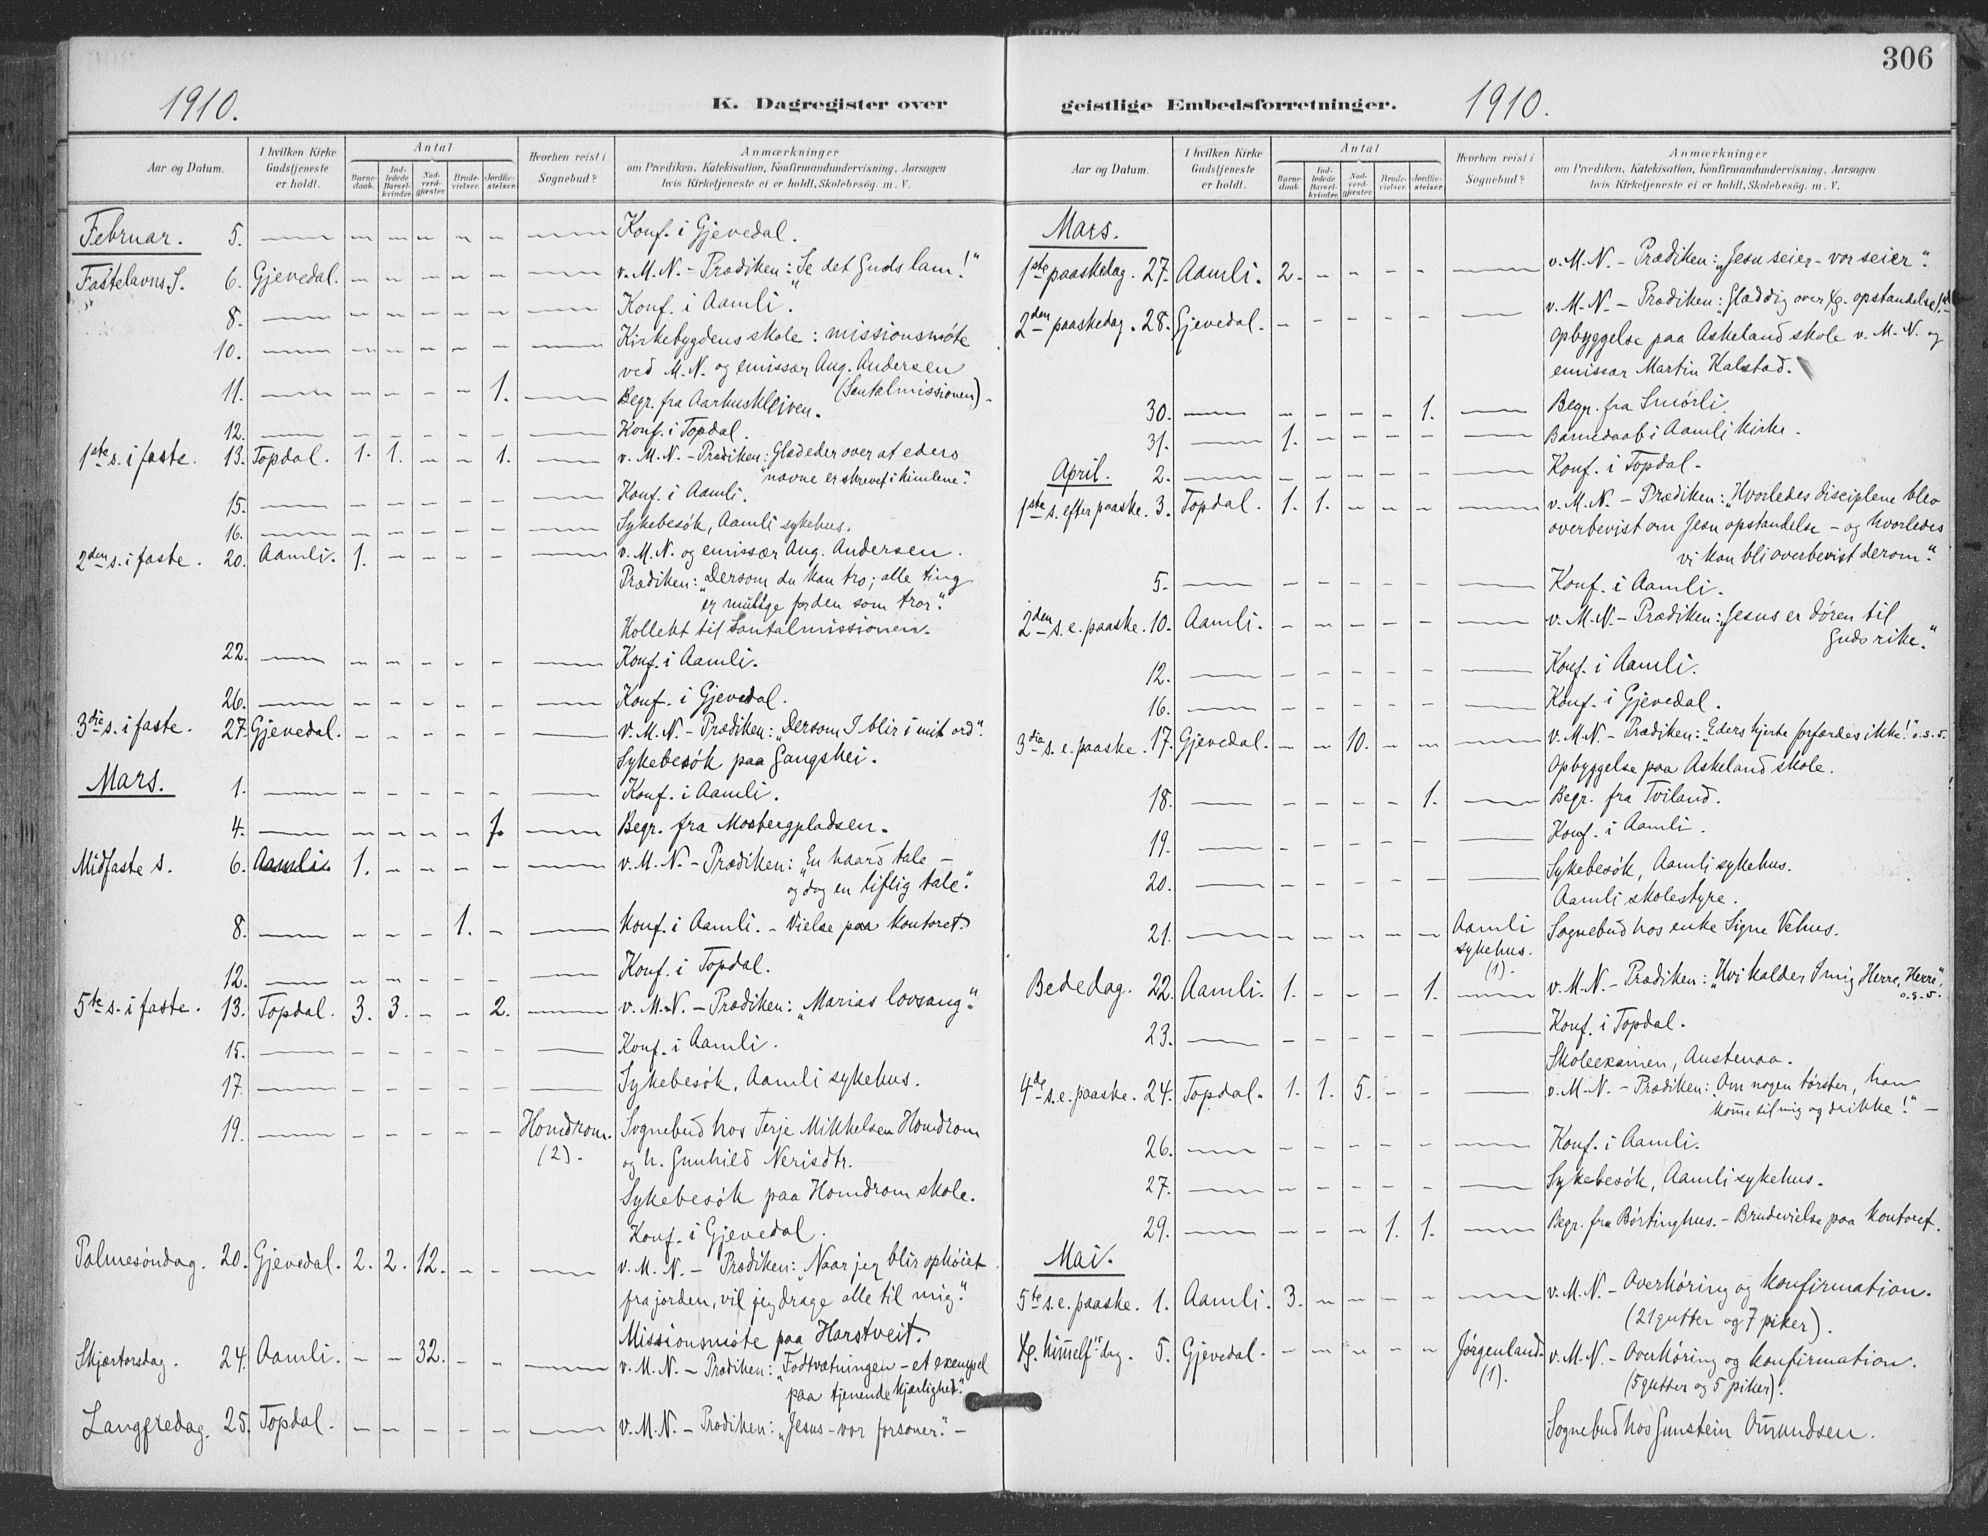 306
1910. K. Dagregister over
Aar og Datum. I hvilken Kirke Gudstjeneste er holdt. Antal Barnedaab. Indledede Barselkvinder. Nadverdgjæster. Brudevielser. Jordfæstelser. Hvorhen reist i Sognebud? Anmærkninger
om Prædiken, Katekisation, Konfirmandundervisning, Aarsagen
hvis Kirketjeneste ei er holdt, Skolebesøg m. V.
Februar. 5. — — — — — — — Konf. i Gjevedal.
Fastelavns S. 6. Gjevedal. — — — — — — v. M. N. – Prædiken: "Se det Guds lam!"
" 8. — — — — — — — Konf. i Aamli.
10. — — — — — — — Kirkebygdens skole: missionsmøte
ved M. N. og emissær Aug. Andersen
(Santalmissionen) –
11. — — — — — 1. — Begr. fra Aarhuskleiven.
12. — — — — — — — Konf. i Topdal.
1ste s. i faste. 13. Topdal. 1. 1. — — 1. — v. M. N. – Prædiken: Glæd eder over at eders
"navne er skrevet i himlene".
15. — — — — — — — Konf. i Aamli.
16. — — — — — — — Sykebesøk, Aamli sykehus.
2den s. i faste. 20. Aamli. 1. — — — — — v. M. N. og emissær Aug. Andersen.
Prædiken: "Dersom du kan tro; alle ting
er mulige for den som tror".
Kollekt til Santalmissionen.
22. — — — — — — — Konf. i Aamli.
26. — — — — — — — Konf. i Gjevedal.
3die s. i faste. 27. Gjevedal. — — — — — — v. M. N. – Prædiken: "Dersom I blir i mit ord".
Sykebesøk paa Gangshei.
Mars. 1. — — — — — — — Konf. i Aamli.
4. — — — — — 1. — Begr. fra Mosbergpladsen.
Midfaste S. 6. Aamli. 1. — — — — — v. M. N. – Prædiken: "En haard tale –
og dog en liflig tale".
8. — — — — 1. — — Konf. i Aamli. – Vielse paa kontoret.
12. — — — — — — — Konf. i Topdal.
5te s. i faste. 13. Topdal. 3. 3. — — 2. — v. M. N. – Prædiken: "Marias lovsang".
15. — — — — — — — Konf. i Aamli.
17. — — — — — — — Sykebesøk, Aamli sykehus.
19. — — — — — — Homdrom. Sognebud hos Terje Mikkelsen Homdrom
(2). og h. Gunhild Nerisdtr.
Sykebesøk paa Homdrom skole.
Konf. i Gjevedal.
Palmesøndag. 20. Gjevedal. 2. 2. 12. — — — v. M. N. – Prædiken: "Naar jeg blir ophøiet
fra jorden, vil jeg drage alle til mig".
Missionsmøte paa Harstveit.
Skjærtorsdag. 24. Aamli. — — 32. — — — v. M. N. – Prædiken: "Fodtvætningen – et exempel
paa tjenende kjærlighed".
Langfredag. 25. Topdal. — — — — — — v. M. N. – Prædiken: "Jesus – vor forsoner". –
geistlige Embedsforretninger. 1910.
Aar og Datum. I hvilken Kirke Gudstjeneste er holdt. Antal Barnedaab. Indledede Barselkvinder. Nadverdgjæster. Brudevielser. Jordfæstelser. Hvorhen reist i Sognebud? Anmærkninger
om Prædiken, Katekisation, Konfirmandundervisning, Aarsagen
hvis Kirketjeneste ei er holdt, Skolebesøg m. V.
Mars.
1ste paaskedag. 27. Aamli. 2. — — — — — v. M. N. – Prædiken: "Jesu seier – vor seier".
2den paaskedag. 28. Gjevedal. — — — — — — v. M. N. – Prædiken: "Glæd dig over Kr. opstandelse!"
Opbyggelse paa Askeland skole v. M. N. og
emissær Martin Kalstad.
30. — — — — — 1. — Begr. fra Smørli.
31. — 1. — — — — — Barnedaab i Aamli kirke.
April. 2. — — — — — — — Konf. i Topdal.
1ste s. efter paaske. 3. Topdal. 1. 1. — — — — v. M. N. – Prædiken: "Hvorledes disciplene blev
overbevist om Jesu opstandelse – og hvorledes
vi kan bli overbevist derom".
5. — — — — — — — Konf. i Aamli.
2den s. e. paaske. 10. Aamli. — — — — — — v. M. N. – Prædiken: "Jesus er døren til
Guds rike".
12. — — — — — — — Konf. i Aamli.
16. — — — — — — — Konf. i Gjevedal.
3die s. e. paaske. 17. Gjevedal. — — 10. — — — v. M. N. – Prædiken: "Eders hjerte forfærdes ikke!" o. s. v.
Opbyggelse paa Askeland skole.
18. — — — — — 1. — Begr. fra Tviland.
19. — — — — — — — Konf. i Aamli.
20. — — — — — — — Sykebesøk, Aamli sykehus.
Aamli skolestyre.
21. — — — — — — Aamli sykehus. (1). Sognebud hos enke Signe Vehus.
Bededag. 22. Aamli. 1. — — — 1. — v. M. N. – Prædiken: "Hvi kalder I mig Herre, Herre",
o. s. v.
23. — — — — — — — Konf. i Topdal.
Skoleexamen, Austenaa.
4de s. e. paaske. 24. Topdal. 1. 1. 5. — — — v. M. N. – Prædiken: "Om nogen tørster, han
komme til mig og drikke!" –
26. — — — — — — — Konf. i Aamli.
27. — — — — — — — Sykebesøk, Aamli sykehus.
29. — — — — 1. 1. — Begr. fra Børtinghus. – Brudevielse paa kontoret.
Mai.
5te s. e. paaske. 1. Aamli. 3. — — — — — v. M. N. – Overhøring og konfirmation.
(21 gutter og 7 piker).
Kr. himmelf.s dag. 5. Gjevedal. — — — — — Jørgenland. v. M. N. – Overhøring og konfirmation.
(1). (5 gutter og 5 piker).
Sognebud hos Gunstein Omundsen.